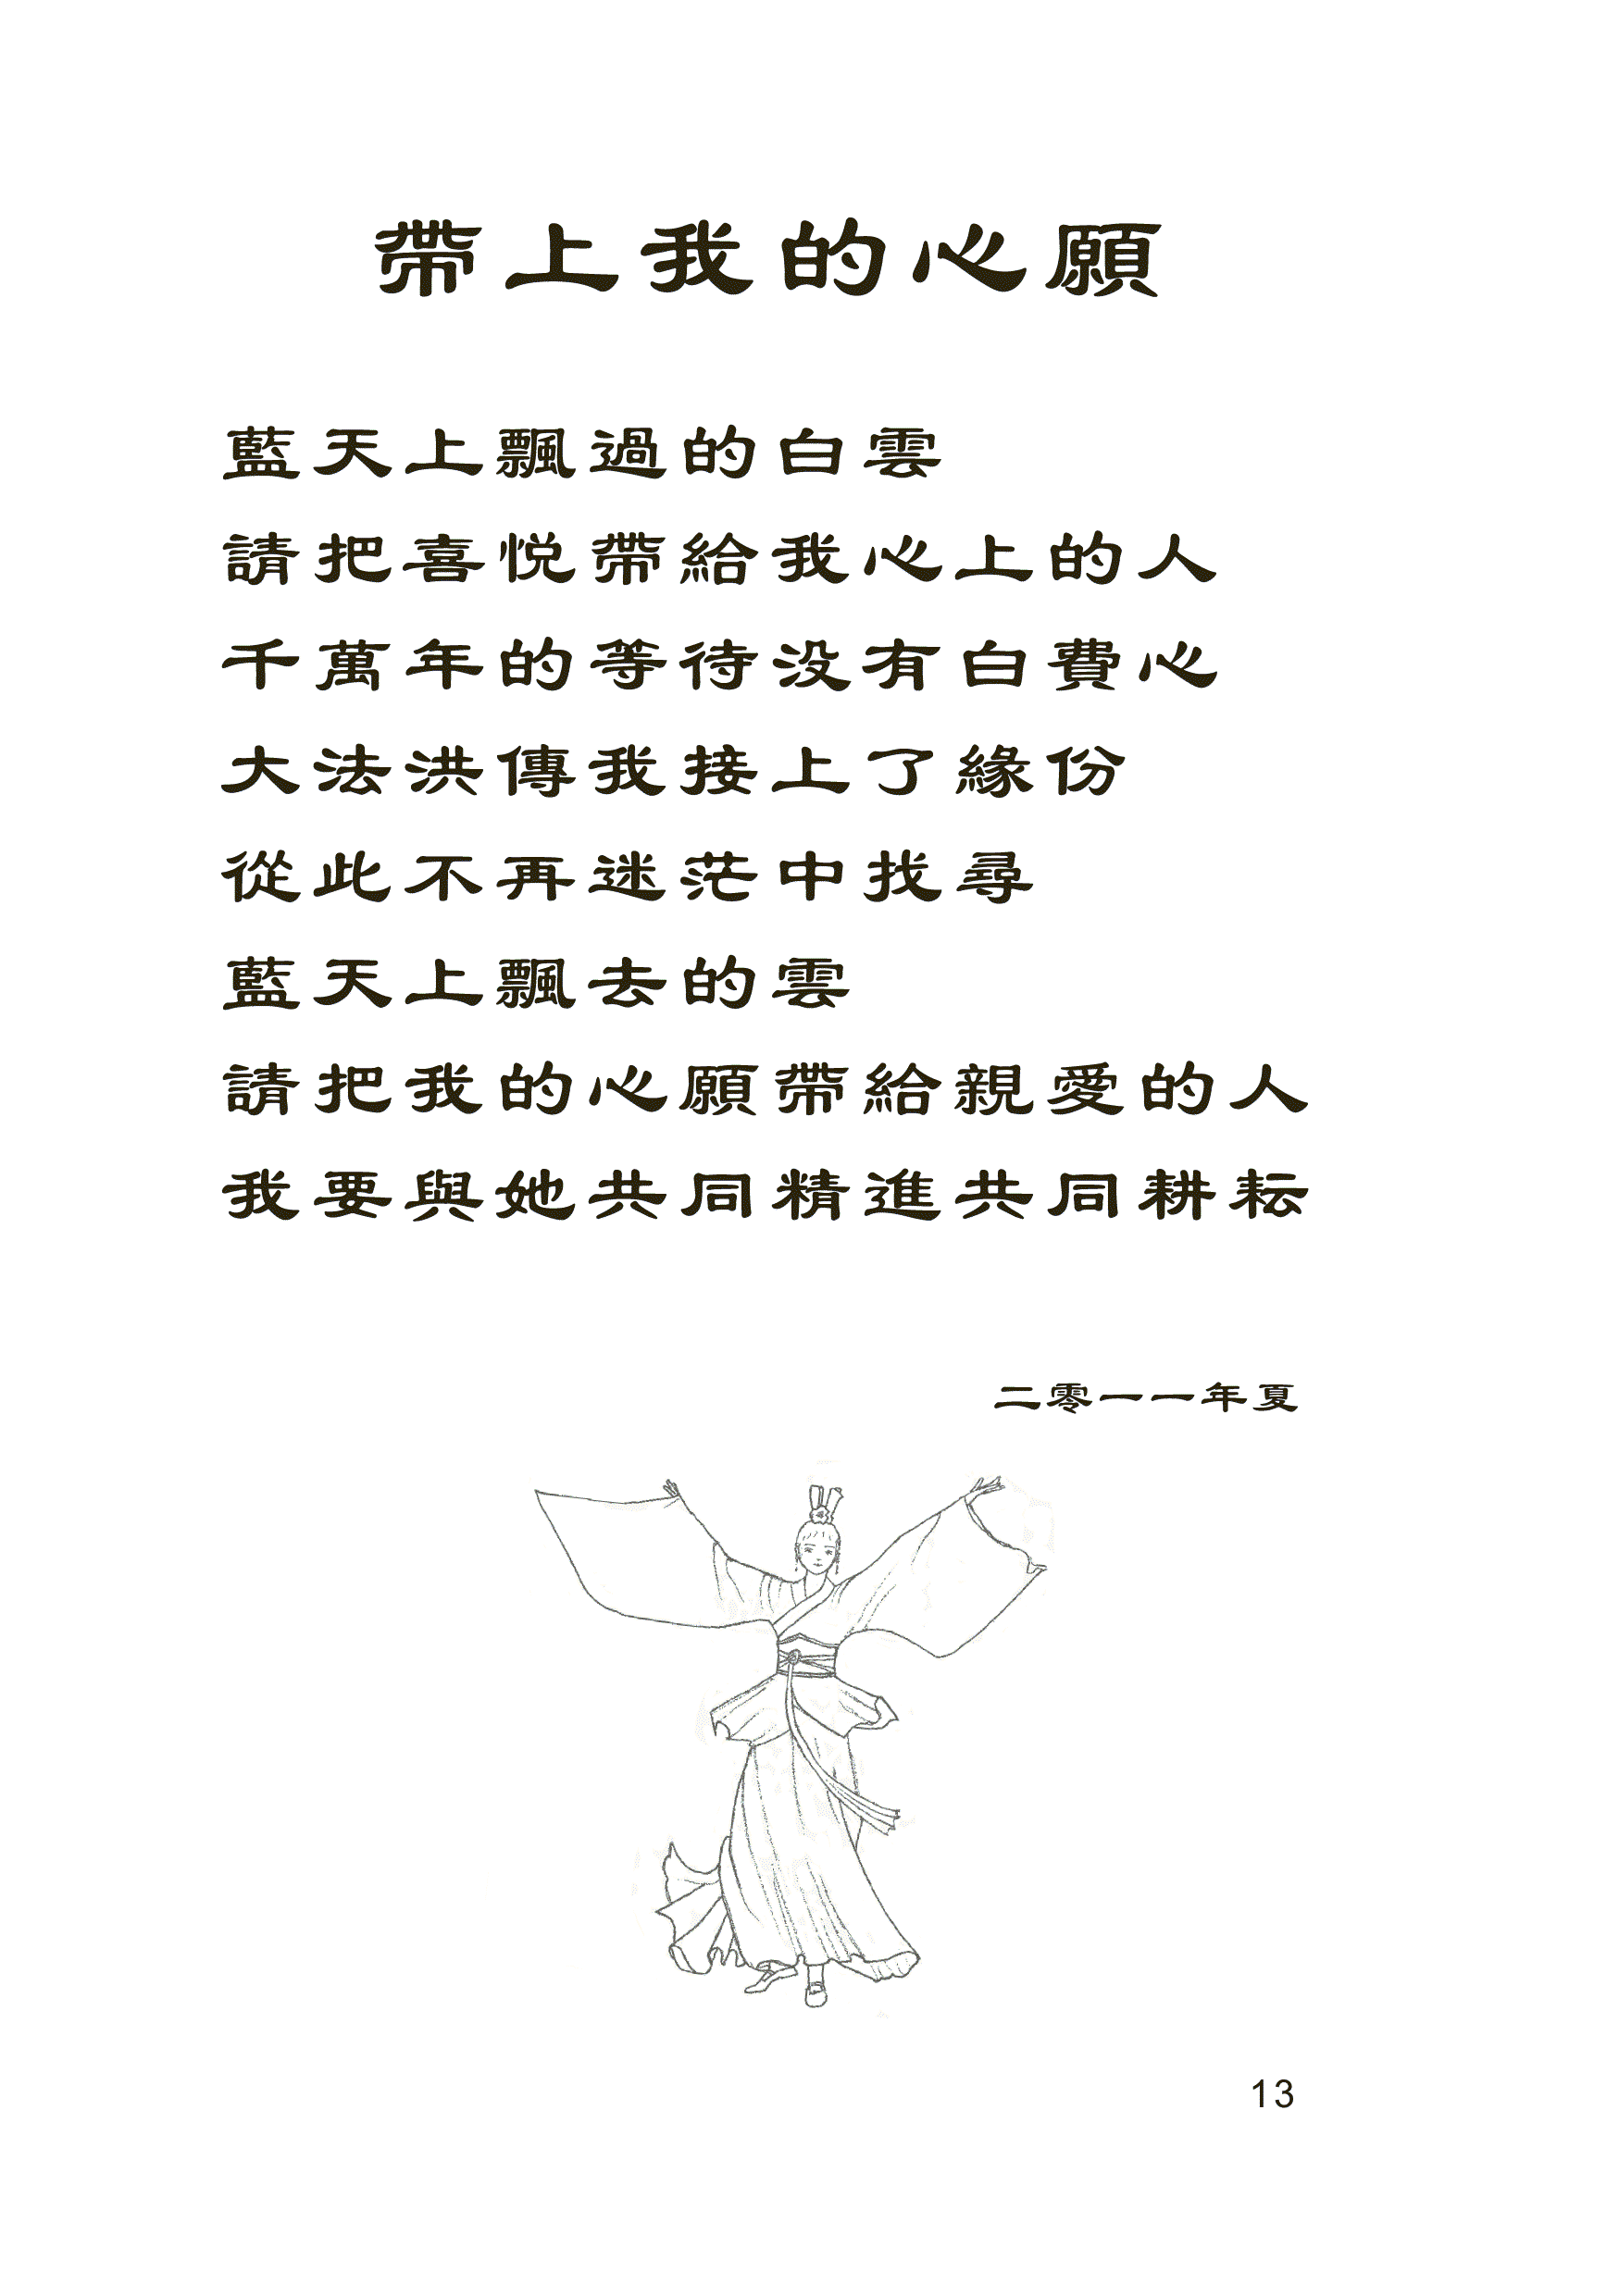 帶上我的心願
藍天上飄過的白雲
請把喜悅帶給我心上的人
千萬年的等待没有白費心
大法洪傳我接上了緣份
從此不再迷茫中找尋
藍天上飄去的雲
請把我的心願帶給親愛的人
我要與她共同精進共同耕耘
二零一一年夏
13